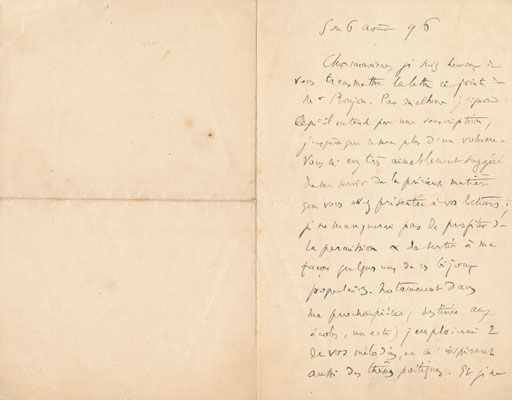 6 août 96
Cher monsieur, je suis heureux de
vous transmettre la lettre ci jointe de
Mr Roujon. Par malheur j'ignore
ce qu'il entend par une souscription,
plus d'un volume.
Vous m'avez très aimablement suggéré
de me servir de la précieuse matière
que vous avez présentée à vos lecteurs :
je ne manquerai pas de profiter de
la permission & de sertir à ma
façon quelques uns de ces bijoux
populaires. Notamment dans
ma prochaine pièce, destinée aux
écoles, un acte) j'emploierai 2
de vos mélodies, en m'inspirant
aussi des thèmes poétiques. Et je ne